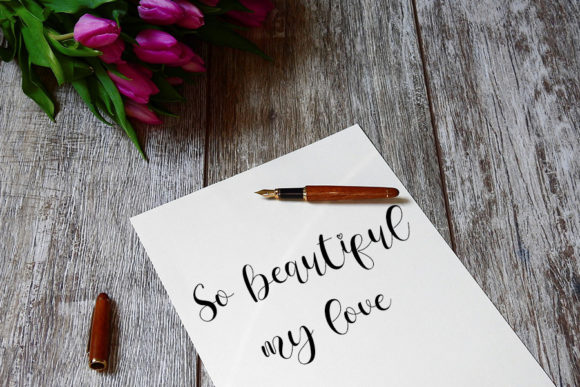 So beautiful
my love